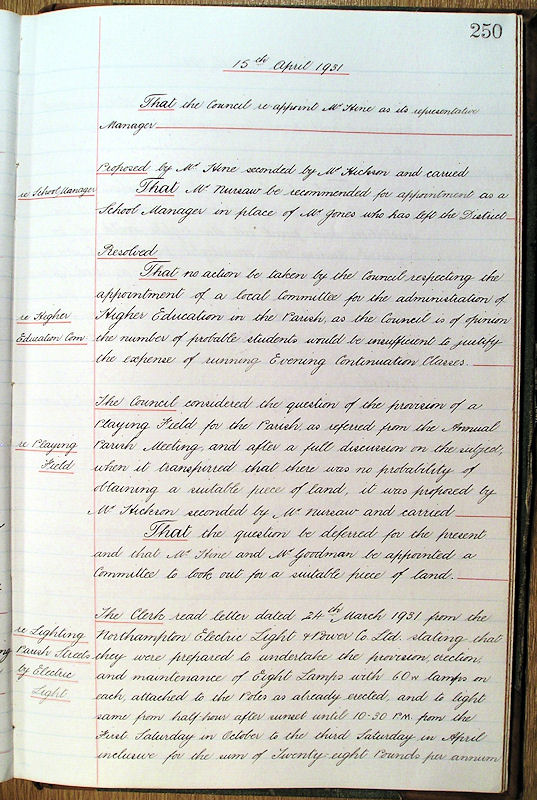 250
15th April 1931
That the Council re appoint Mr Hine as its representative
Manager
Proposed by Mr Hine seconded by Mr Hickson and carried
re School Manager
That Mr Nursaw be recommended for appointment as a
School Manager in place of Mr Jones who has left the District
Resolved
That no action be taken by the Council respecting the
appointment of a local Committee for the administration of
re Higher
Education Com
Higher Education in the Parish, as the Council is of opinion
the number of probable students would be insufficient to justify
the expense of running Evening Continuation Classes.
The Council considered the question of the provision of a
Playing Field for the Parish, as referred from the Annual
re Playing
Field
Parish Meeting, and after a full discussion on the subject,
when it transpirred that there was no probability of
obtaining a suitable piece of land, it was proposed by
Mr Hickson seconded by Mr Nursaw and carried
That the question be deferred for the present
and that Mr Hine and Mr Goodman be appointed a
Committee to look out for a suitable piece of land.
The Clerk read letter dated 24th March 1931 from the
re Lighting
Parish Streets
by Electric
Light
Northampton Electric Light & Power Co. Ltd. stating that
they were prepared to undertake the provision, erection,
and maintenance of Eight Lamps with 60w lamps on
each, attached to the Poles as already erected, and to light
same from half hour after sunset until 10-30 P.M. from the
First Saturday in October to the third Saturday in April
inclusive for the sum of Twenty eight Pounds per annum